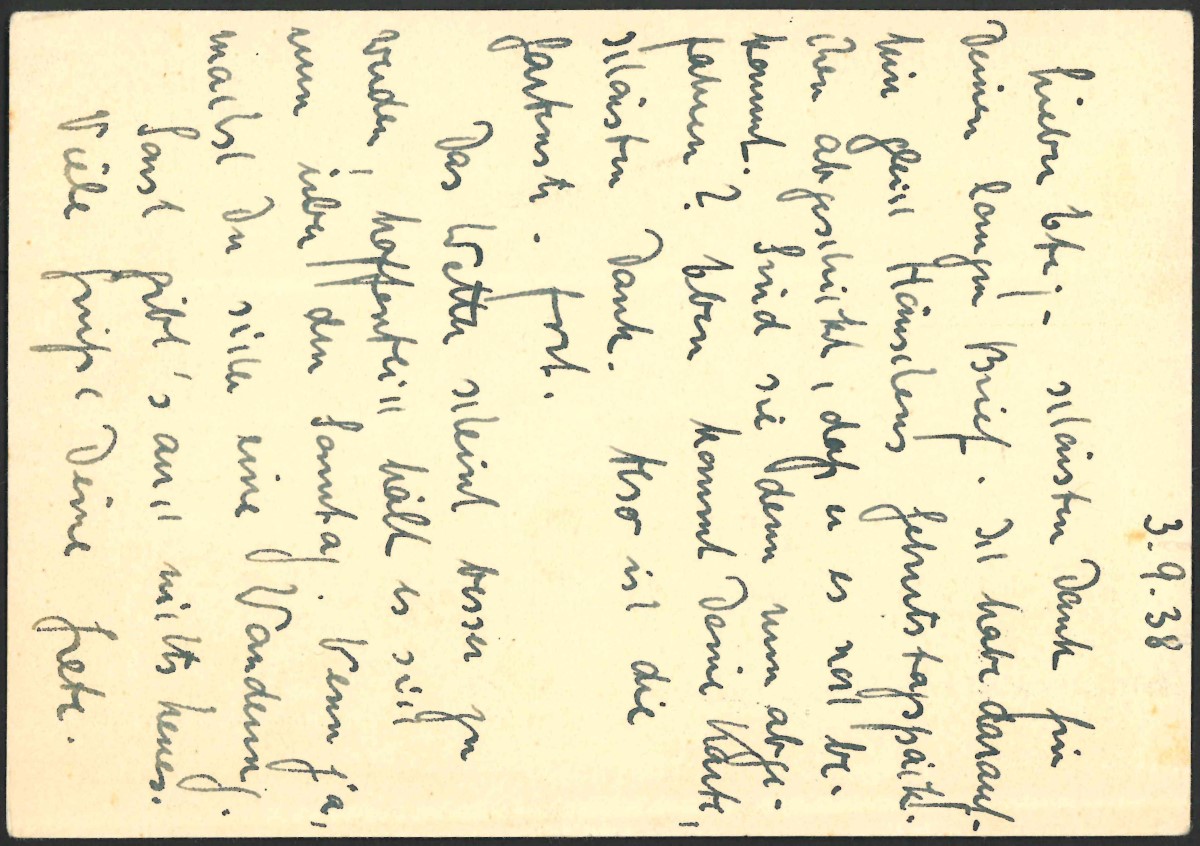 3.9.38
Lieber Ebi, - schönsten Dank für
Deinen langen Brief. Ich habe darauf-
hin gleich Hänschens Geburtstagspäck-
chen abgeschickt, daß er es noch be-
kommt. Sind sie denn nun abge-
fahren? Eben kommt Deine Karte,
schönsten Dank. Also ist die
Gartenstr. fort.
Das Wetter scheint besser zu
werden, hoffentlich hält es sich
nun über den Sonntag. Wenn ja,
machst Du sicher eine Wanderung.
Sonst gibt's auch nichts Neues.
Viele Grüße Deine Grete.